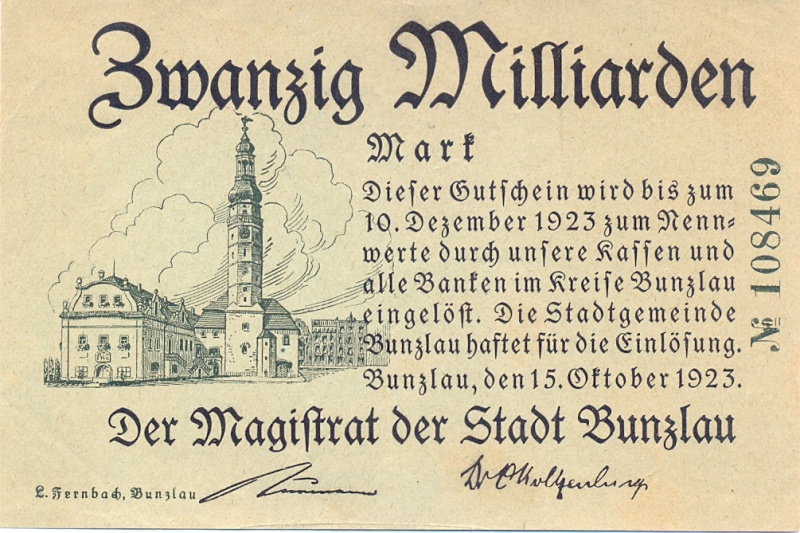 Zwanzig Milliarden
Mark
Dieser Gutschein wird bis zum
10. Dezember 1923 zum Nenn-
werte durch unsere Kassen und
alle Banken im Kreise Bunzlau
eingelöst. Die Stadtgemeinde
Bunzlau haftet für die Einlösung.
Bunzlau, den 15. Oktober 1923.
№ 108469
Der Magistrat der Stadt Bunzlau
L. Fernbach, Bunzlau